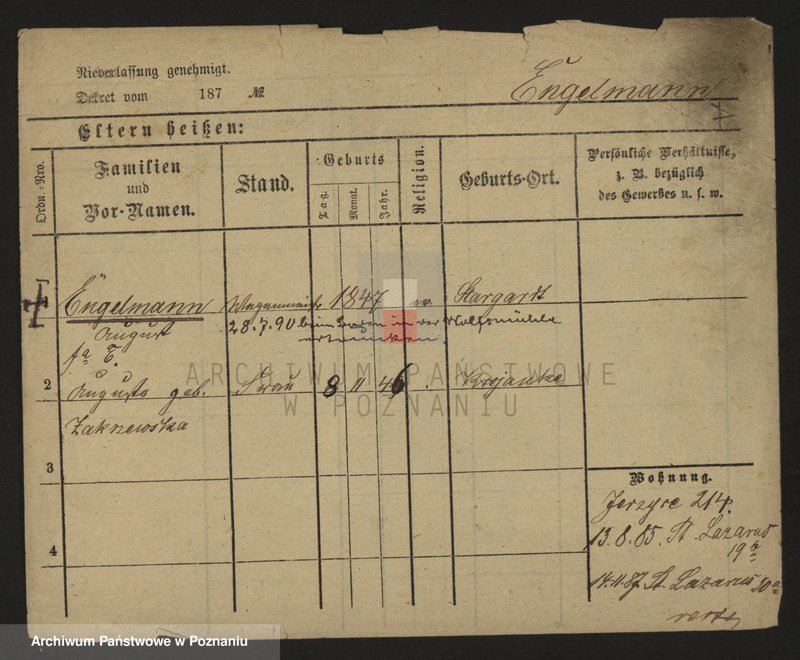 Niederlassung genehmigt.
Dekret vom 187 №
Engelmann
Eltern heißen:
Ordn.-Nro.
Familien
und
Vor-Namen.
Stand.
Geburts
Tag.
Monat.
Jahr.
Religion.
Geburts-Ort.
Persönliche Verhältnisse,
z. B. bezüglich
des Gewerbes u. s. w.
Engelmann
August
1847 ev. Stargardt
28.7.90 beim Baden in der Wolfsmühle
ertrunken
2
Augusta geb. Frau 8 11 46 Krojanke
Zakrzewska
3
4
Wohnung.
Jerzyce 214.
13.8.85. St. Lazarus
14.11.87 St. Lazarus
ARCHIWUM PAŃSTWOWE
W POZNANIU
Archiwum Państwowe w Poznaniu